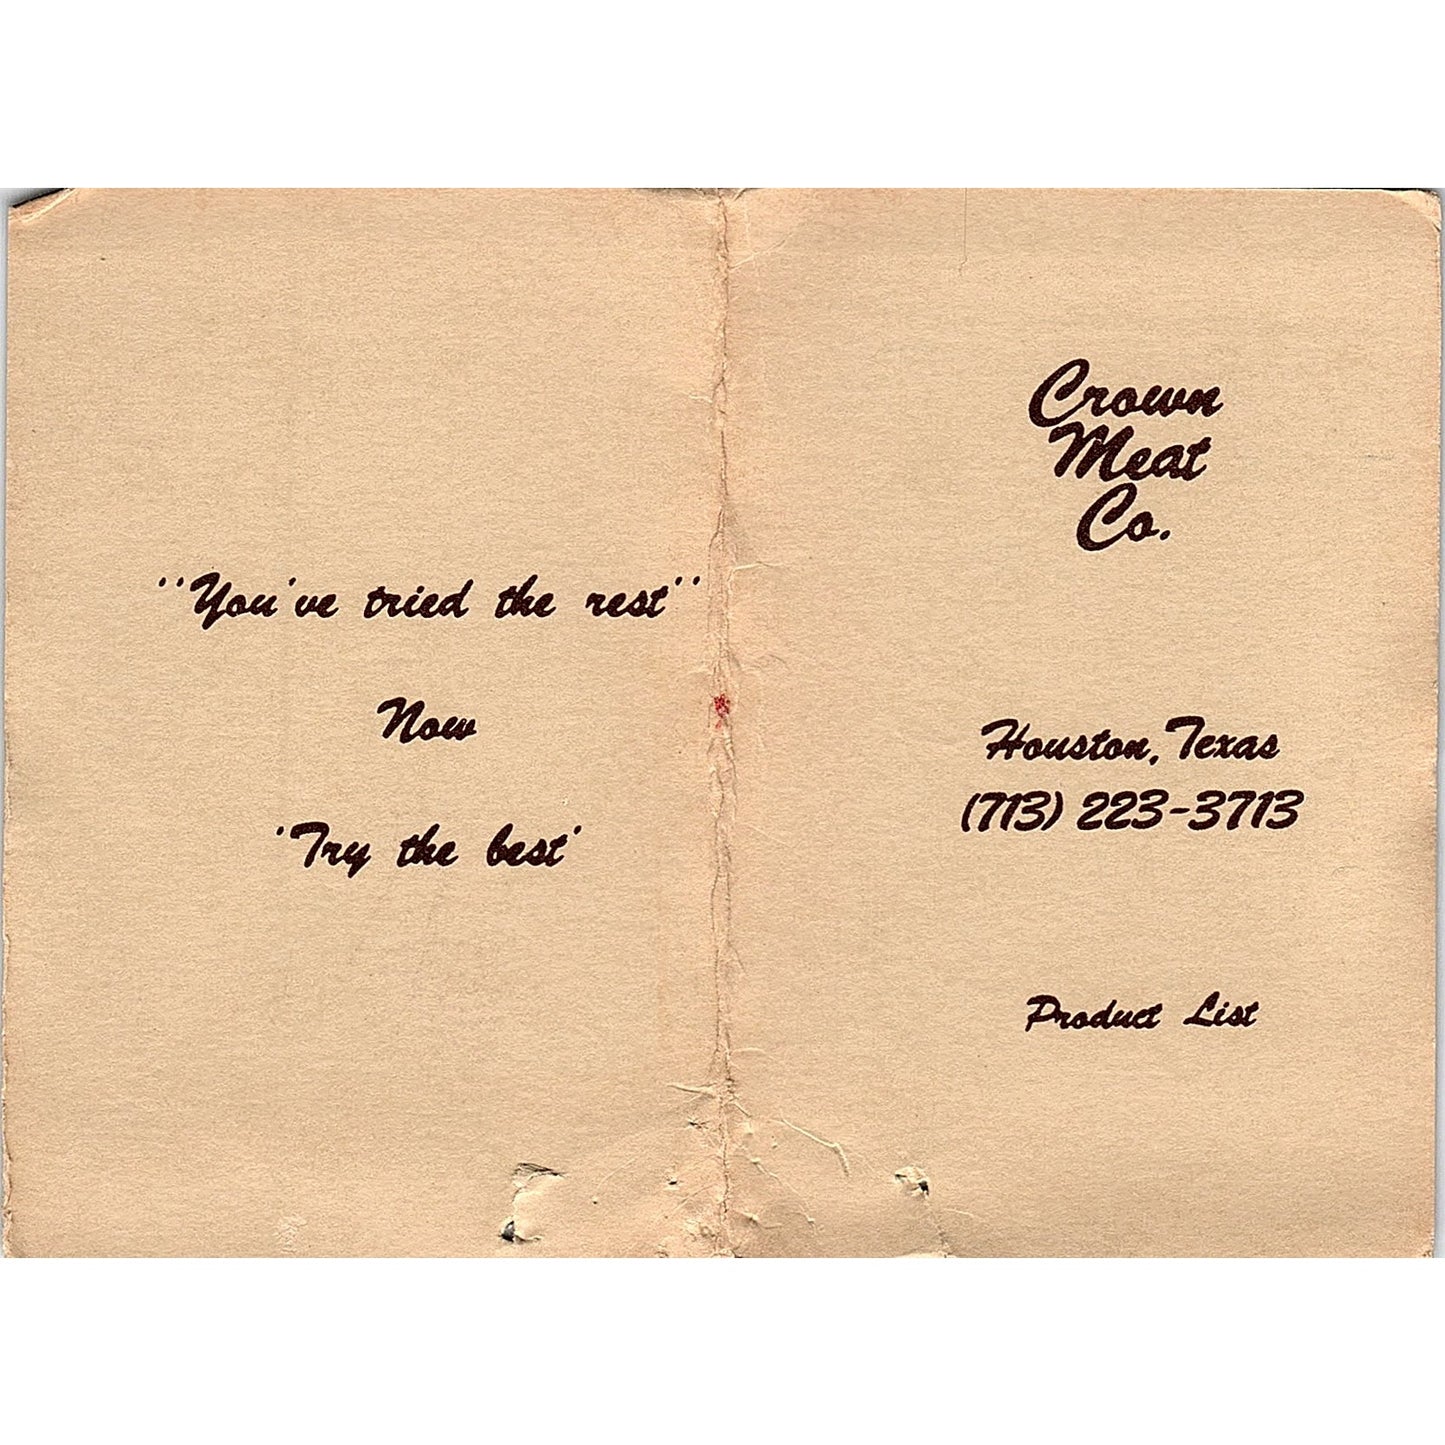 ''You've tried the rest''
Now
'Try the best'
Crown
Meat
Co.
Houston, Texas
(713) 223-3713
Product List